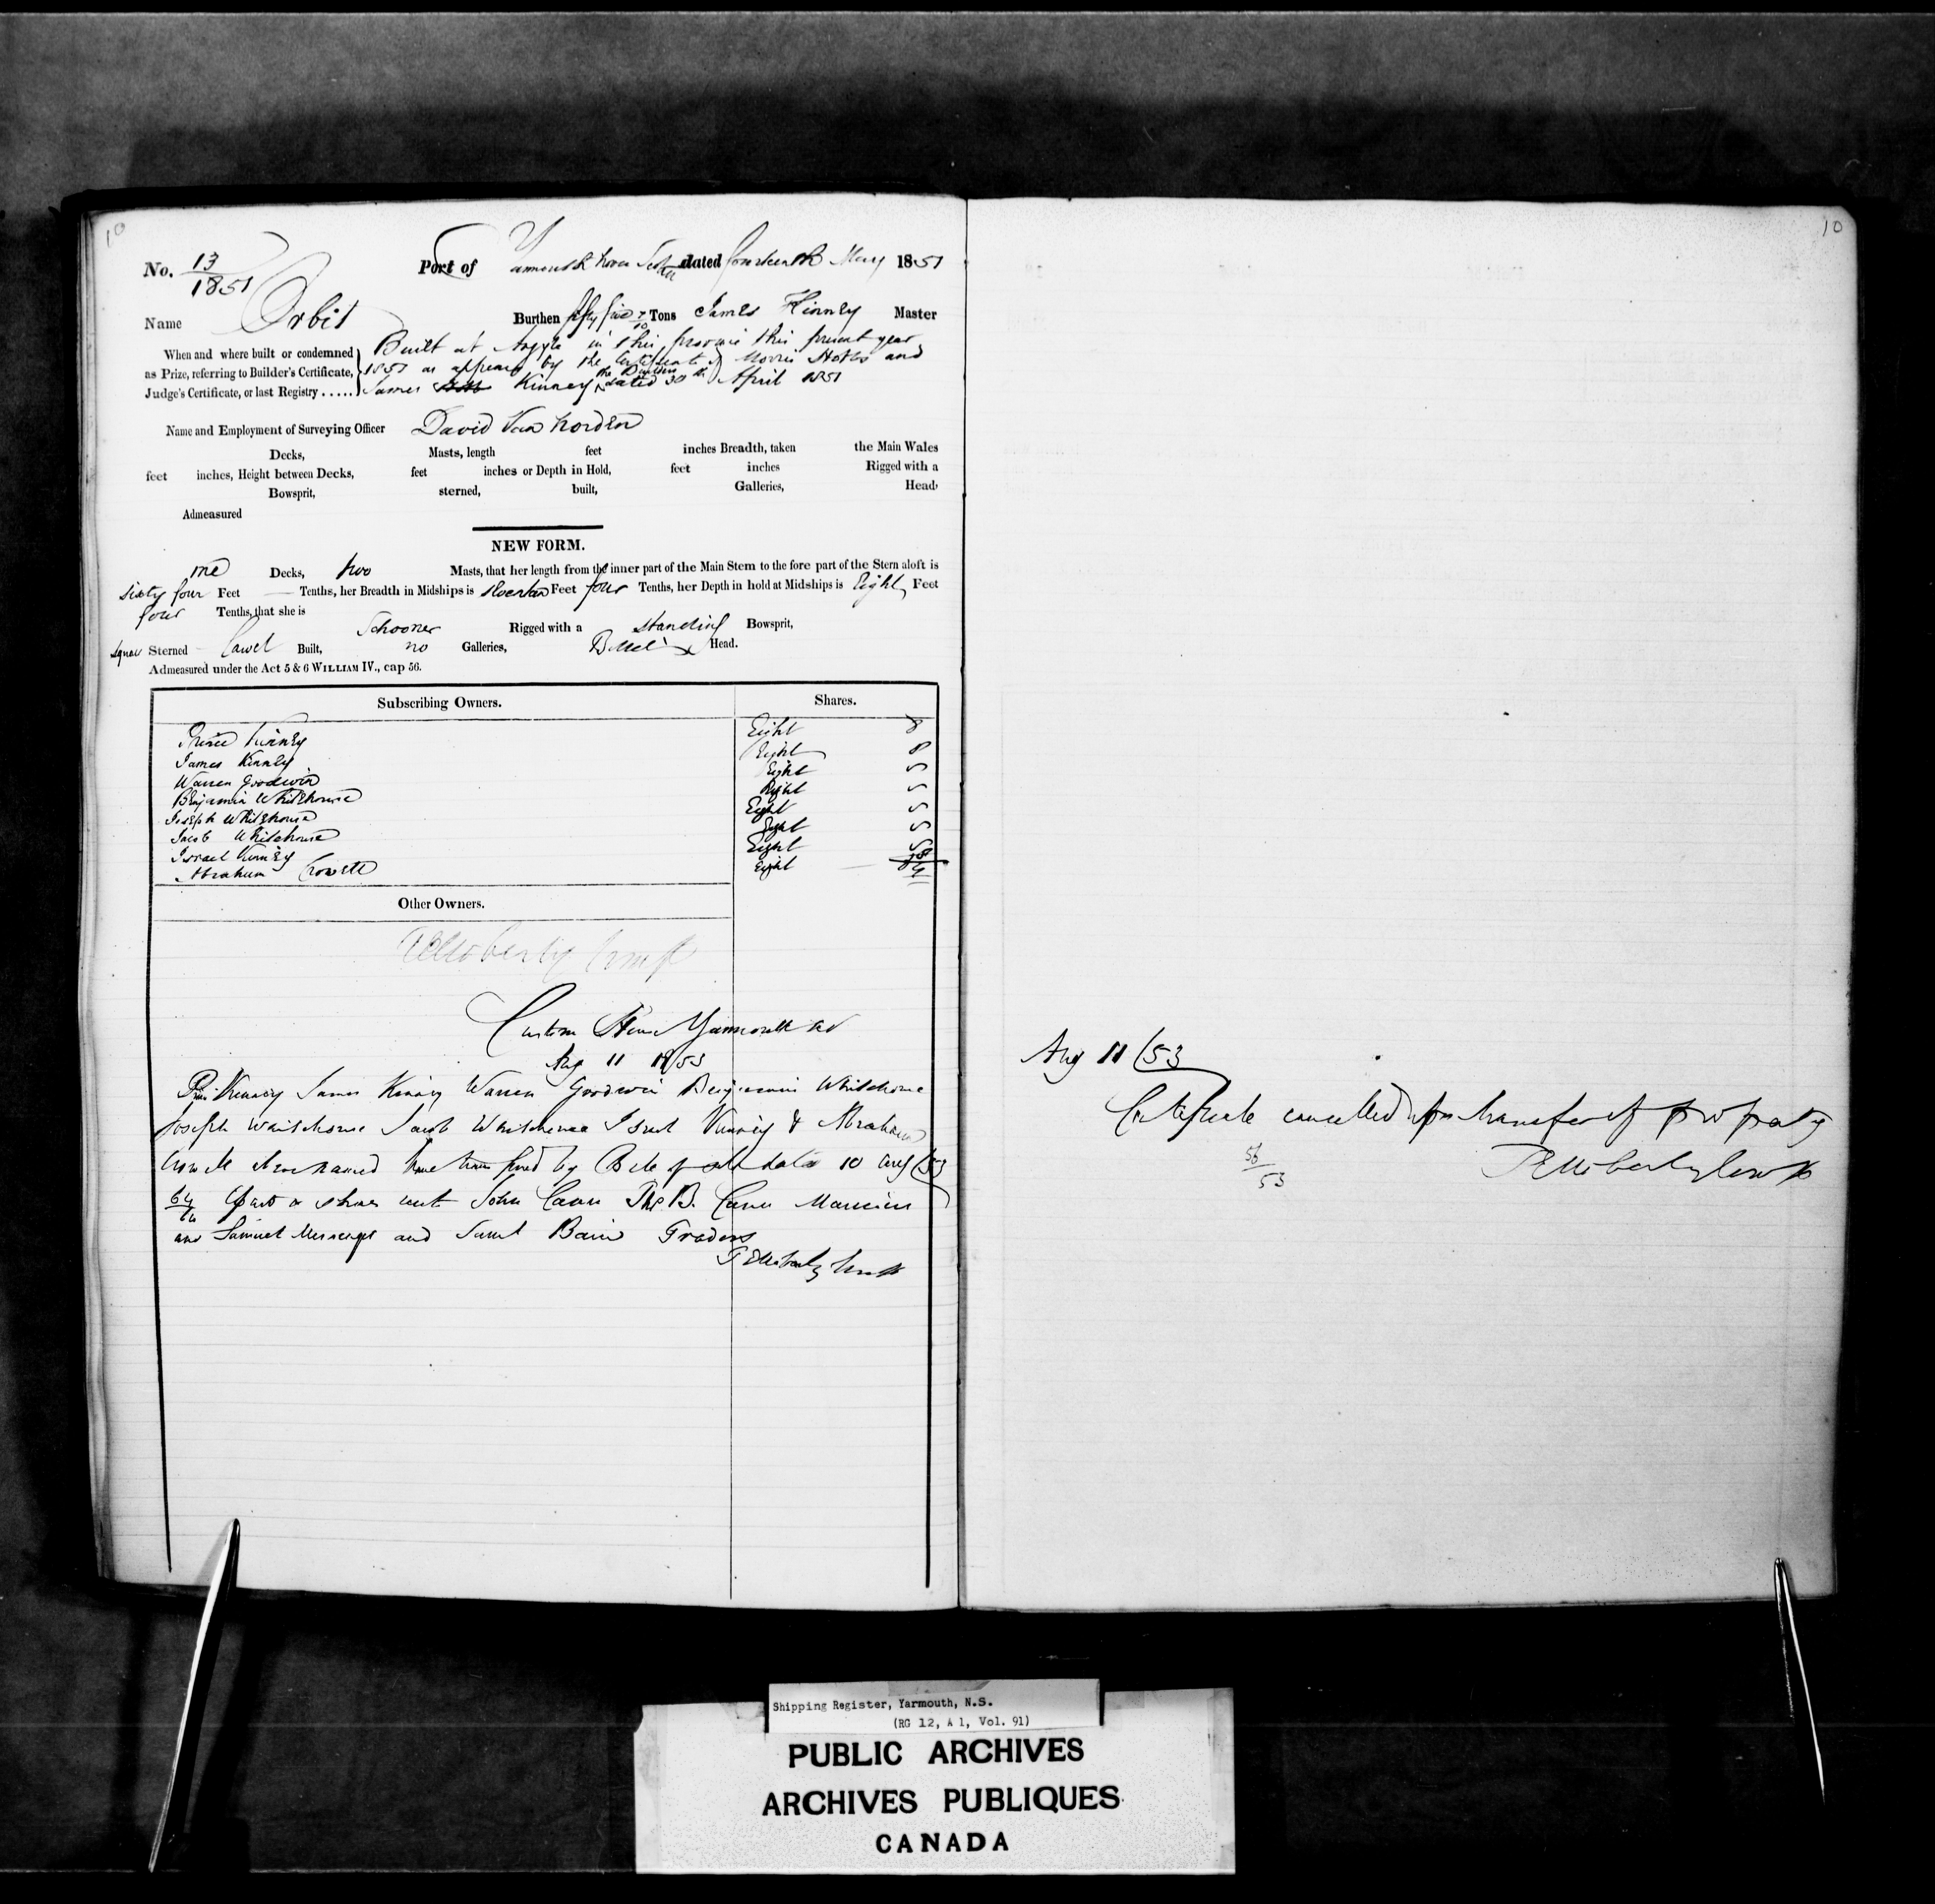 10
No. 13/1851 Port of Yarmouth Nova Scotia dated fourteenth May 1851
Name Orbit Burthen fifty five 7/10 Tons James Kinney Master
When and where built or condemned as Prize, referring to Builder's Certificate, Judge's Certificate, or last Registry.....
Built at Argyle in this province this present year
1851 as appears by the Certificate of Morris Hobbs and
James Kinney the Builders dated 30th April 1851
Name and Employment of Surveying Officer David Van Norden
Decks, Masts, length feet inches Breadth, taken the Main Wales
feet inches, Height between Decks, feet inches or Depth in Hold, feet inches Rigged with a
Bowsprit, sterned, built, Galleries, Head,
Admeasured
NEW FORM.
one Decks, two Masts, that her length from the inner part of the Main Stem to the fore part of the Stern aloft is
sixty four Feet — Tenths, her Breadth in Midships is Feet four Tenths, her Depth in hold at Midships is Eight Feet
four Tenths, that she is
Schooner Rigged with a standing Bowsprit,
square Sterned Carvel Built, no Galleries, Billet Head.
Admeasured under the Act 5 & 6 WILLIAM IV., cap 56.
Subscribing Owners. Shares.
Prince Kinney Eight 8
James Kinney Eight 8
Warren Goodwin Eight
Benjamin Whitehouse Eight
Joseph Whitehouse Eight
Jacob Whitehouse Eight
Israel Kinney Eight
Abraham Crowell Eight
Other Owners.
Custom House Yarmouth
Aug 11 1853
Kinney James Kinney Warren Goodwin Benjamin Whitehouse
Joseph Whitehouse Jacob Whitehouse Israel Kinney & Abraham
Crowell above named have transferred by Bill of Sale dated 10 Aug /53
64/64 parts or shares unto John Cann Thos B. Cann Mariners
and Samuel Messenger and Saml Bain Traders
10
Aug 11 /53
Certificate cancelled upon transfer of property
56/53
Shipping Register, Yarmouth, N.S.
(RG 12, A 1, Vol. 91)
PUBLIC ARCHIVES
ARCHIVES PUBLIQUES
CANADA